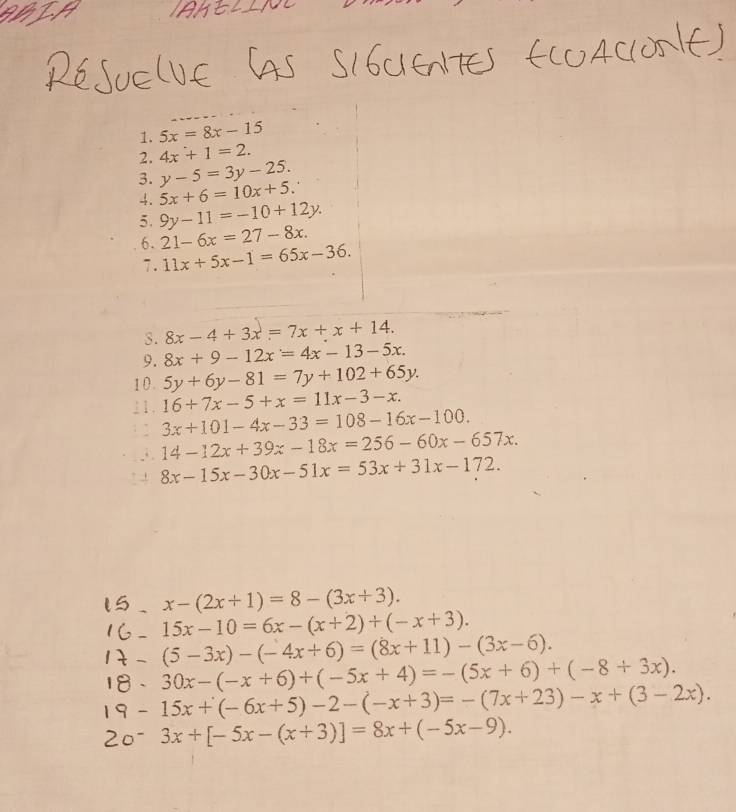 RESUELVE LAS SIGUIENTES ECUACIONES
1. 5x = 8x − 15
2. 4x + 1 = 2.
3. y − 5 = 3y − 25.
4. 5x + 6 = 10x + 5.
5. 9y − 11 = −10 + 12y.
6. 21 − 6x = 27 − 8x.
7. 11x + 5x − 1 = 65x − 36.
8. 8x − 4 + 3x = 7x + x + 14.
9. 8x + 9 − 12x = 4x − 13 − 5x.
10. 5y + 6y − 81 = 7y + 102 + 65y.
11. 16 + 7x − 5 + x = 11x − 3 − x.
3x + 101 − 4x − 33 = 108 − 16x − 100.
14 − 12x + 39x − 18x = 256 − 60x − 657x.
8x − 15x − 30x − 51x = 53x + 31x − 172.
15 - x − (2x + 1) = 8 − (3x + 3).
16 - 15x − 10 = 6x − (x + 2) + (−x + 3).
17 - (5 − 3x) − (−4x + 6) = (8x + 11) − (3x − 6).
18 - 30x − (−x + 6) + (−5x + 4) = −(5x + 6) + (−8 + 3x).
19 - 15x + (−6x + 5) − 2 − (−x + 3) = −(7x + 23) − x + (3 − 2x).
20 - 3x + [−5x − (x + 3)] = 8x + (−5x − 9).